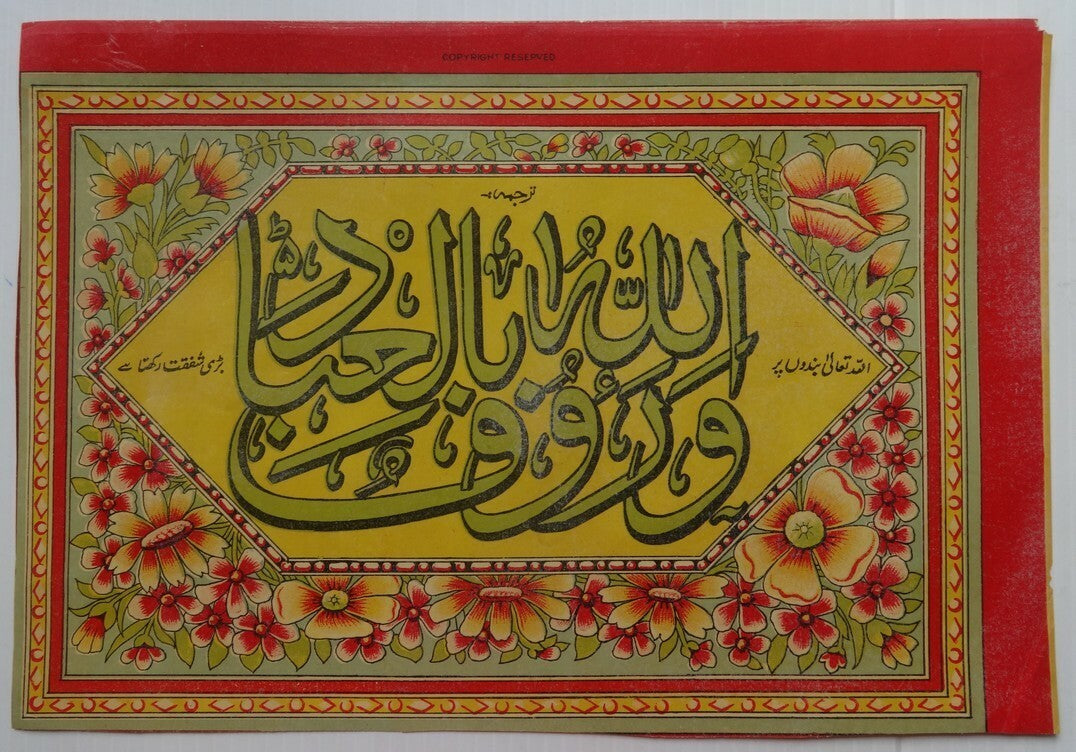 COPYRIGHT RESERVED
ترجمہ:
واللہ رؤف بالعباد
اللہ تعالیٰ بندوں پر
بڑی شفقت رکھتا ہے